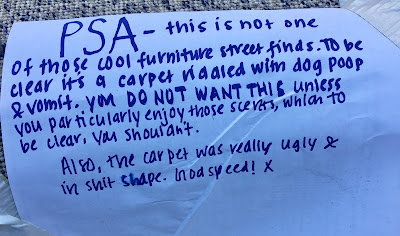 PSA - this is not one
of those cool furniture street finds. To be
clear it's a carpet riddled with dog poop
& vomit. YOU DO NOT WANT THIS unless
you particularly enjoy those scents, which to
be clear, you shouldn't.
Also, the carpet was really ugly &
in shit shape. Godspeed! X